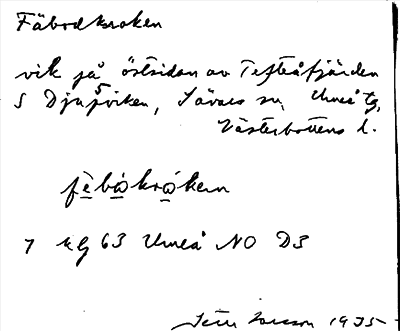 Fäbodkroken
vik på östsidan av Tefteåfjärden
S Djupviken, Sävars sn, Umeå tg,
Västerbottens l.
fèbòkròken
7 kg 63 Umeå NO D3
Larsson 1935